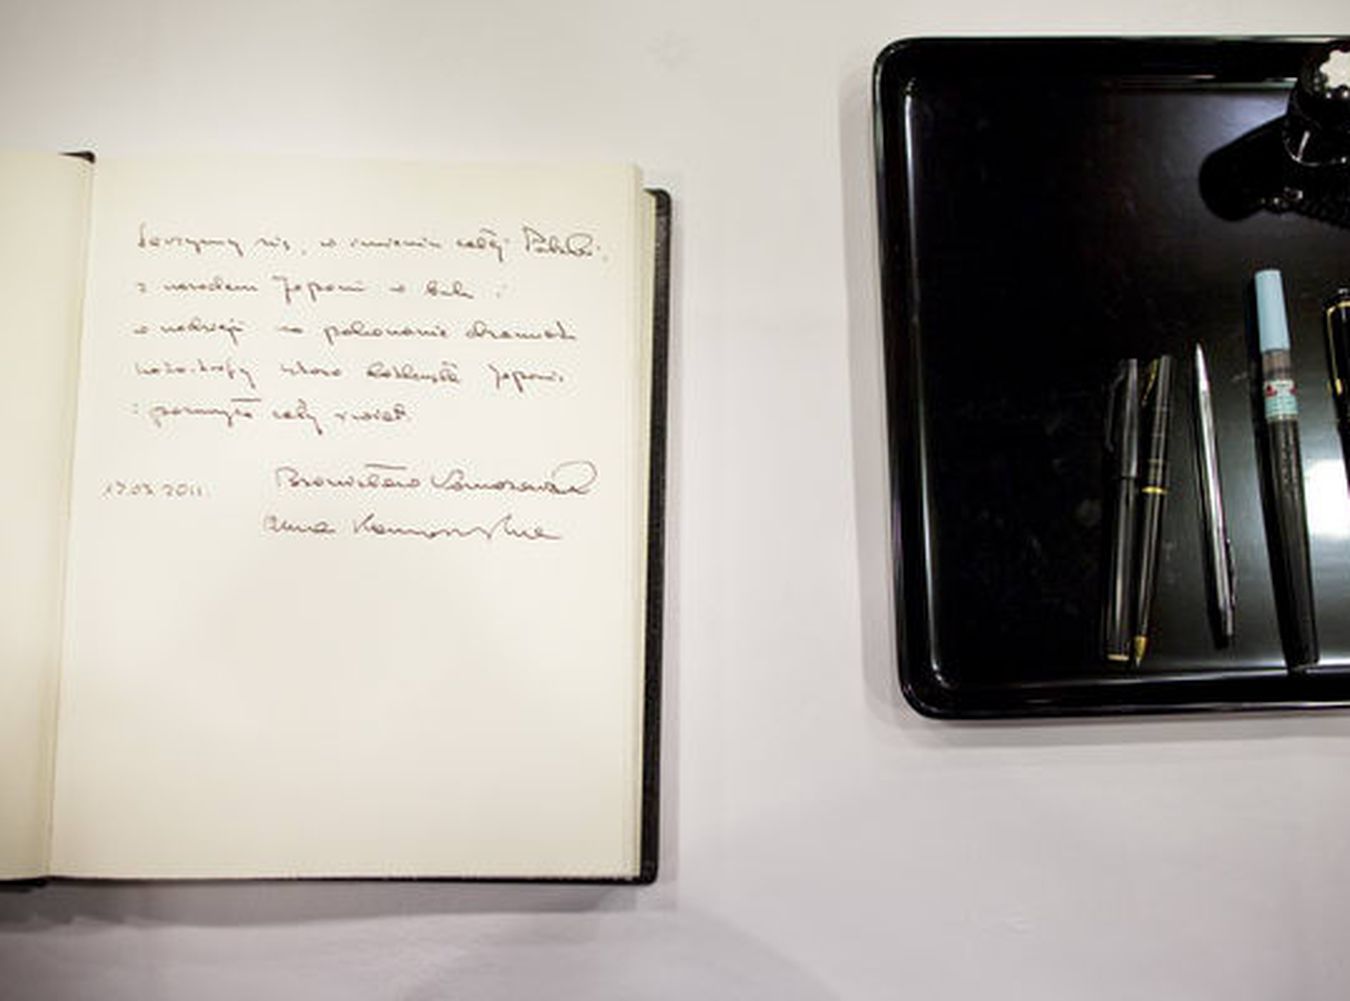 Łączymy się, w imieniu całej Polski,
z narodem Japonii w bulu i
w nadzieji na pokonanie dramatu
katastrofy która dotknęła Japonię
i poruszyła cały świat.
17.03.2011 Bronisław Komorowski
Anna Komorowska